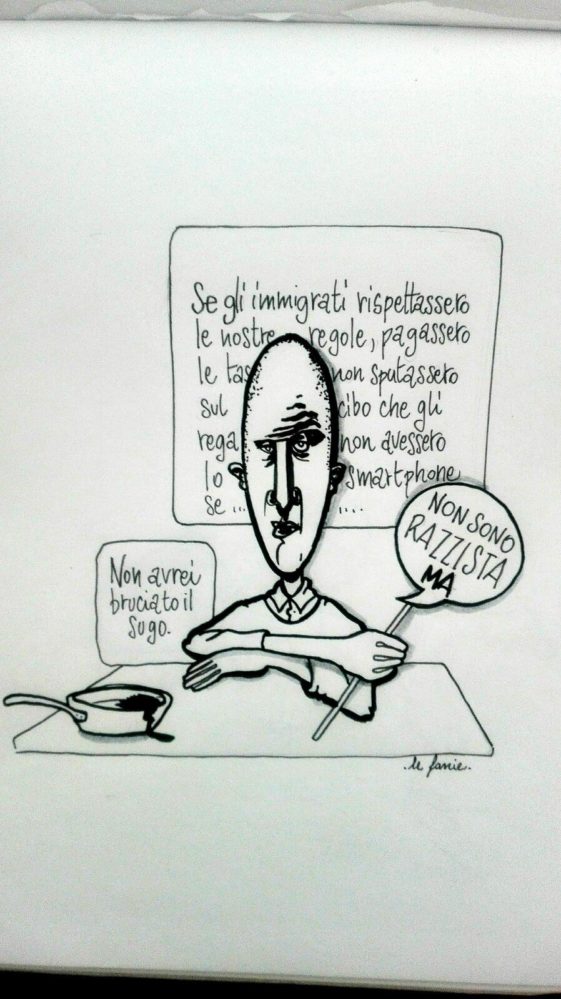 Se gli immigrati rispettassero
le nostre regole, pagassero
le tas non sputassero
sul cibo che gli
rega non avessero
lo smartphone
se ... ....
NON SONO
RAZZISTA
MA
Non avrei
bruciato il
sugo.
.le fanie.